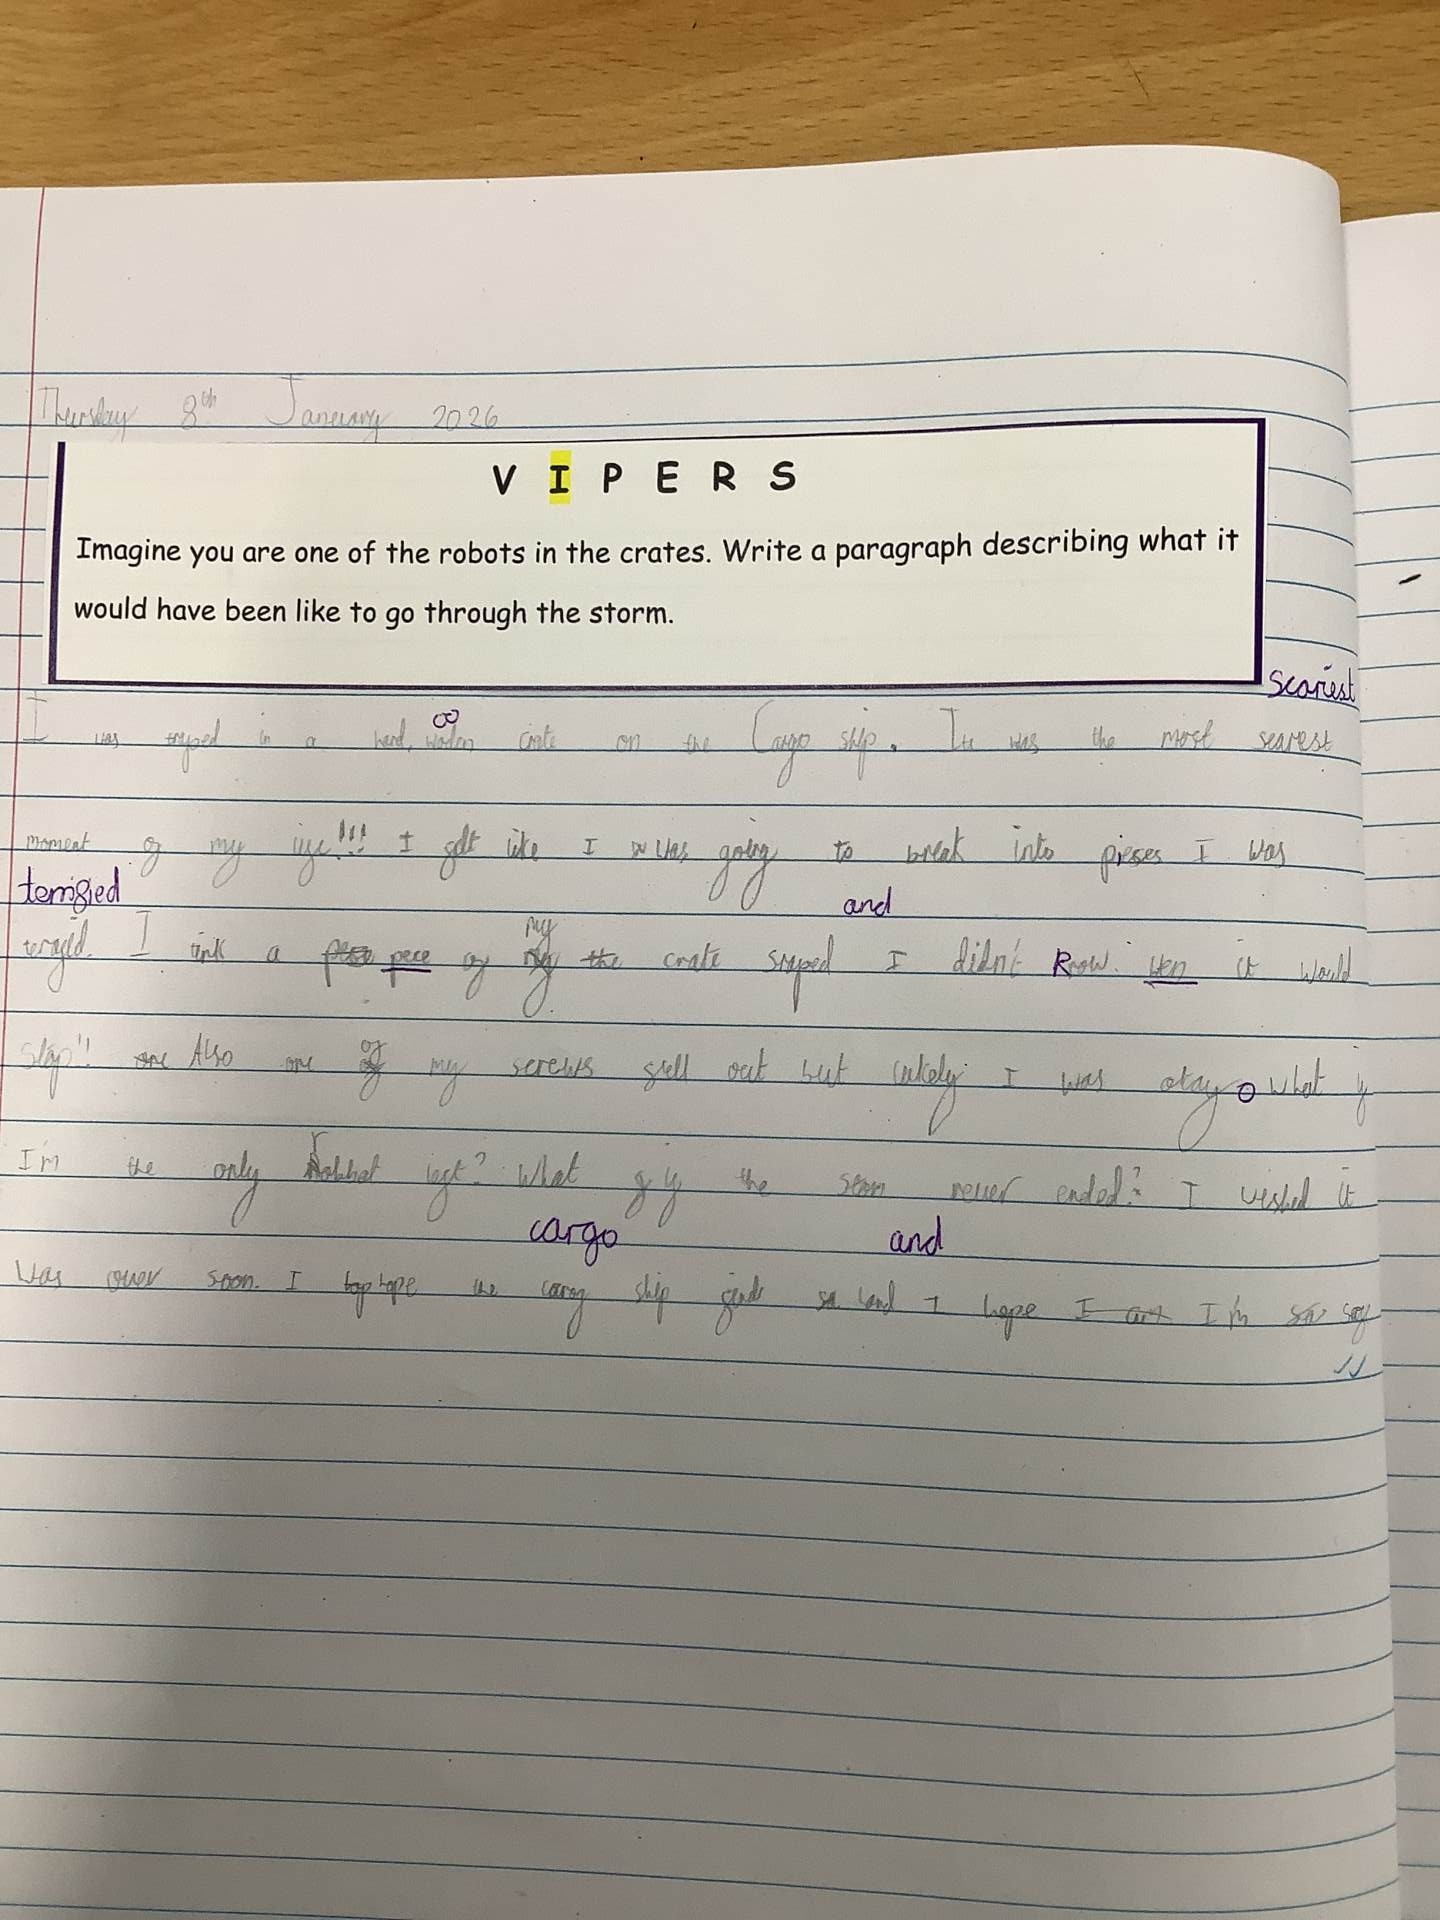 Thursday 8th Janeuary 2026
V I P E R S
Imagine you are one of the robots in the crates. Write a paragraph describing what it
would have been like to go through the storm.
scariest
oo
I was traped in a hard, woden crate on the Cargo ship. It was the most searest
moment of my life!!! I felt like I was going to break into pieses I was
terrified and
I a pece of my the crate snaped I didn't Know. wen it would
Stop!! Also one of my screws fell out but lukely I was okay. What if
I'm the only left? What if the storm never ended? I wished it
cargo and
was over soon. I hope the carog ship finds land I hope I'm